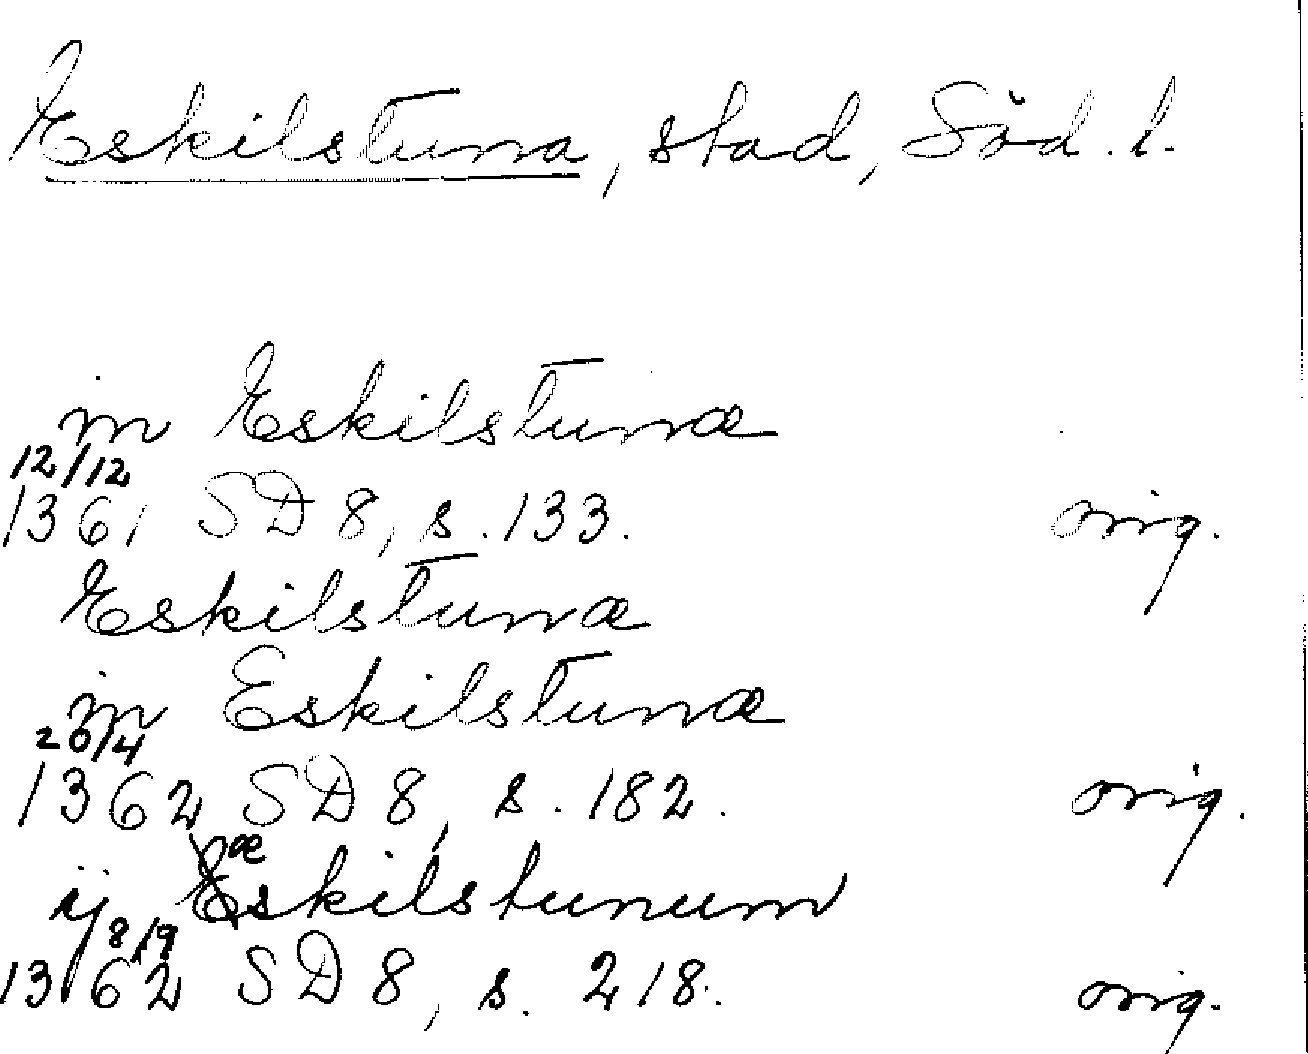 Eskilstuna, stad, Söd. l.
in Eskilstunæ
12/12
1361 SD 8, s. 133. orig.
Eskilstunæ
in Eskilstunæ
20/4
1362 SD 8, s. 182. orig.
ij æskilstunum
8/9
1362 SD 8, s. 218. orig.